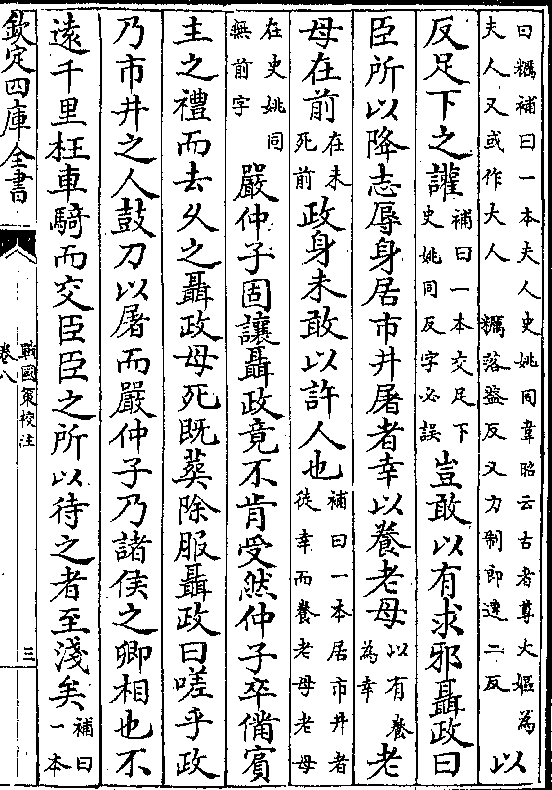 曰糲補曰一本夫人史姚同韋昭云古者尊大嫗為
夫人又或作大人 糲落蓋反又力制即達二反
以
反足下之讙
補曰一本交足下
史姚同反字必誤
豈敢以有求邪聶政曰
臣所以降志辱身居市井屠者幸以養老母
以有養
為幸
老
母在前
在未
死前
政身未敢以許人也
補曰一本居市井者
徒幸而養老母老母
在史姚同
無前字
嚴仲子固讓聶政竟不肯受然仲子卒備賓
主之禮而去久之聶政母死既葬除服聶政曰嗟乎政
乃市井之人鼓刀以屠而嚴仲子乃諸侯之卿相也不
遠千里枉車騎而交臣臣之所以待之者至淺矣
補曰
一本
欽定四庫全書
戰國策校注
卷八
三